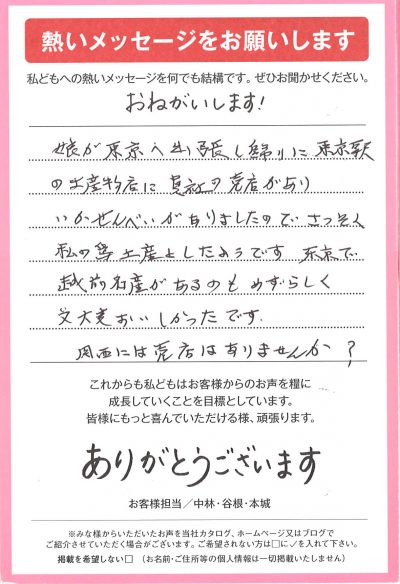 熱いメッセージをお願いします
私どもへの熱いメッセージを何でも結構です。ぜひお聞かせください。
おねがいします!
娘が東京へ出張し帰りに東京駅
の土産物店に貴社の売店があり
いかせんべいがありましたのでさっそく
私の土産としたようです 東京で
越前名産があるのもめずらしく
又大変おいしかったです.
関西には売店はありませんか?
これからも私どもはお客様からのお声を糧に
成長していくことを目標としています。
皆様にもっと喜んでいただける様、頑張ります。
ありがとうございます
お客様担当／中林・谷根・本城
※みな様からいただいたお声を当社カタログ、ホームページ又はブログで
ご紹介させていただく場合がございます。ご希望されない方は□に✓を入れて下さい。
掲載を希望しない□ （お名前・ご住所等の個人情報は一切掲載いたしません）